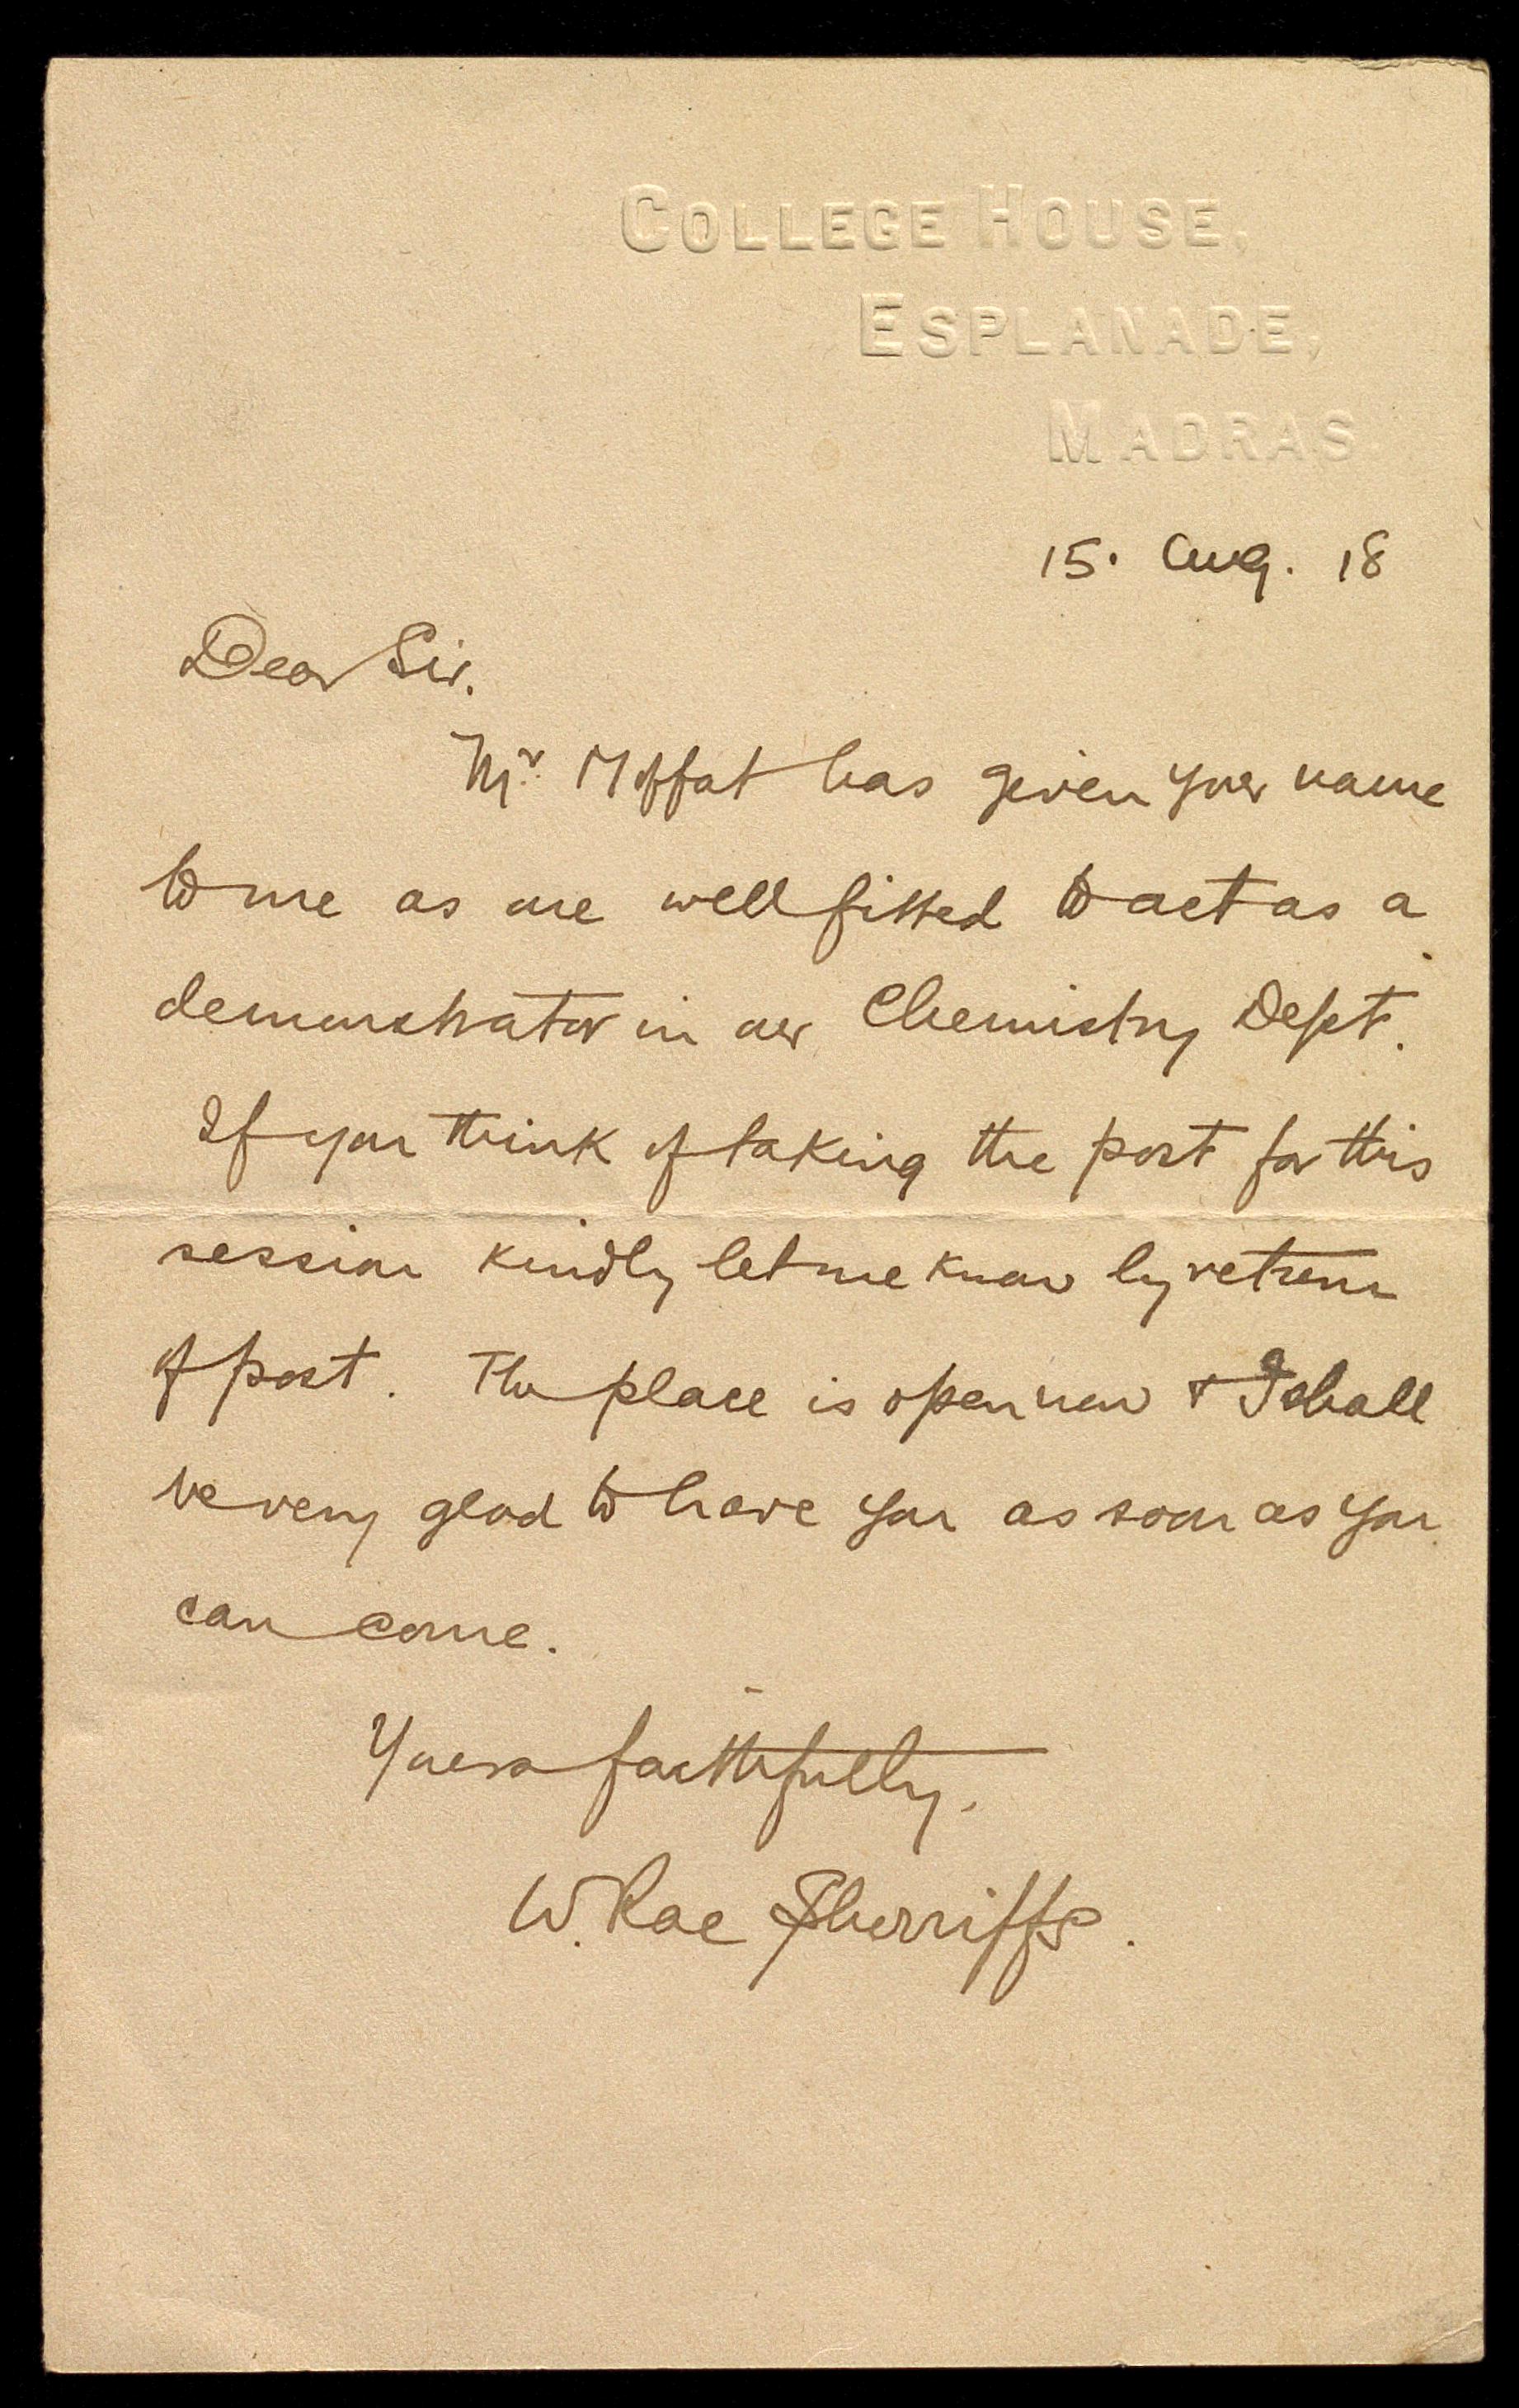 COLLEGE HOUSE,
ESPLANADE,
MADRAS.
15. Aug. 18
Dear Sir.
Mr. Moffat has given your name
to me as one well fitted to act as a
demonstrator in our Chemistry Dept.
If you think of taking the post for this
session kindly let me know by return
of post. The place is open now & I shall
be very glad to have you as soon as you
can come.
Yours faithfully,
W. Rae Sherriffs.